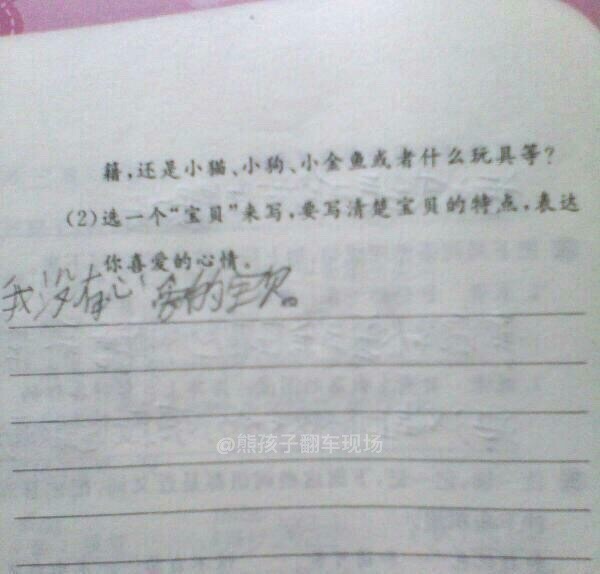 籍,还是小猫、小狗、小金鱼或者什么玩具等?
(2)选一个“宝贝”来写,要写清楚宝贝的特点,表达
你喜爱的心情。
我没有心爱的宝贝。
@熊孩子翻车现场